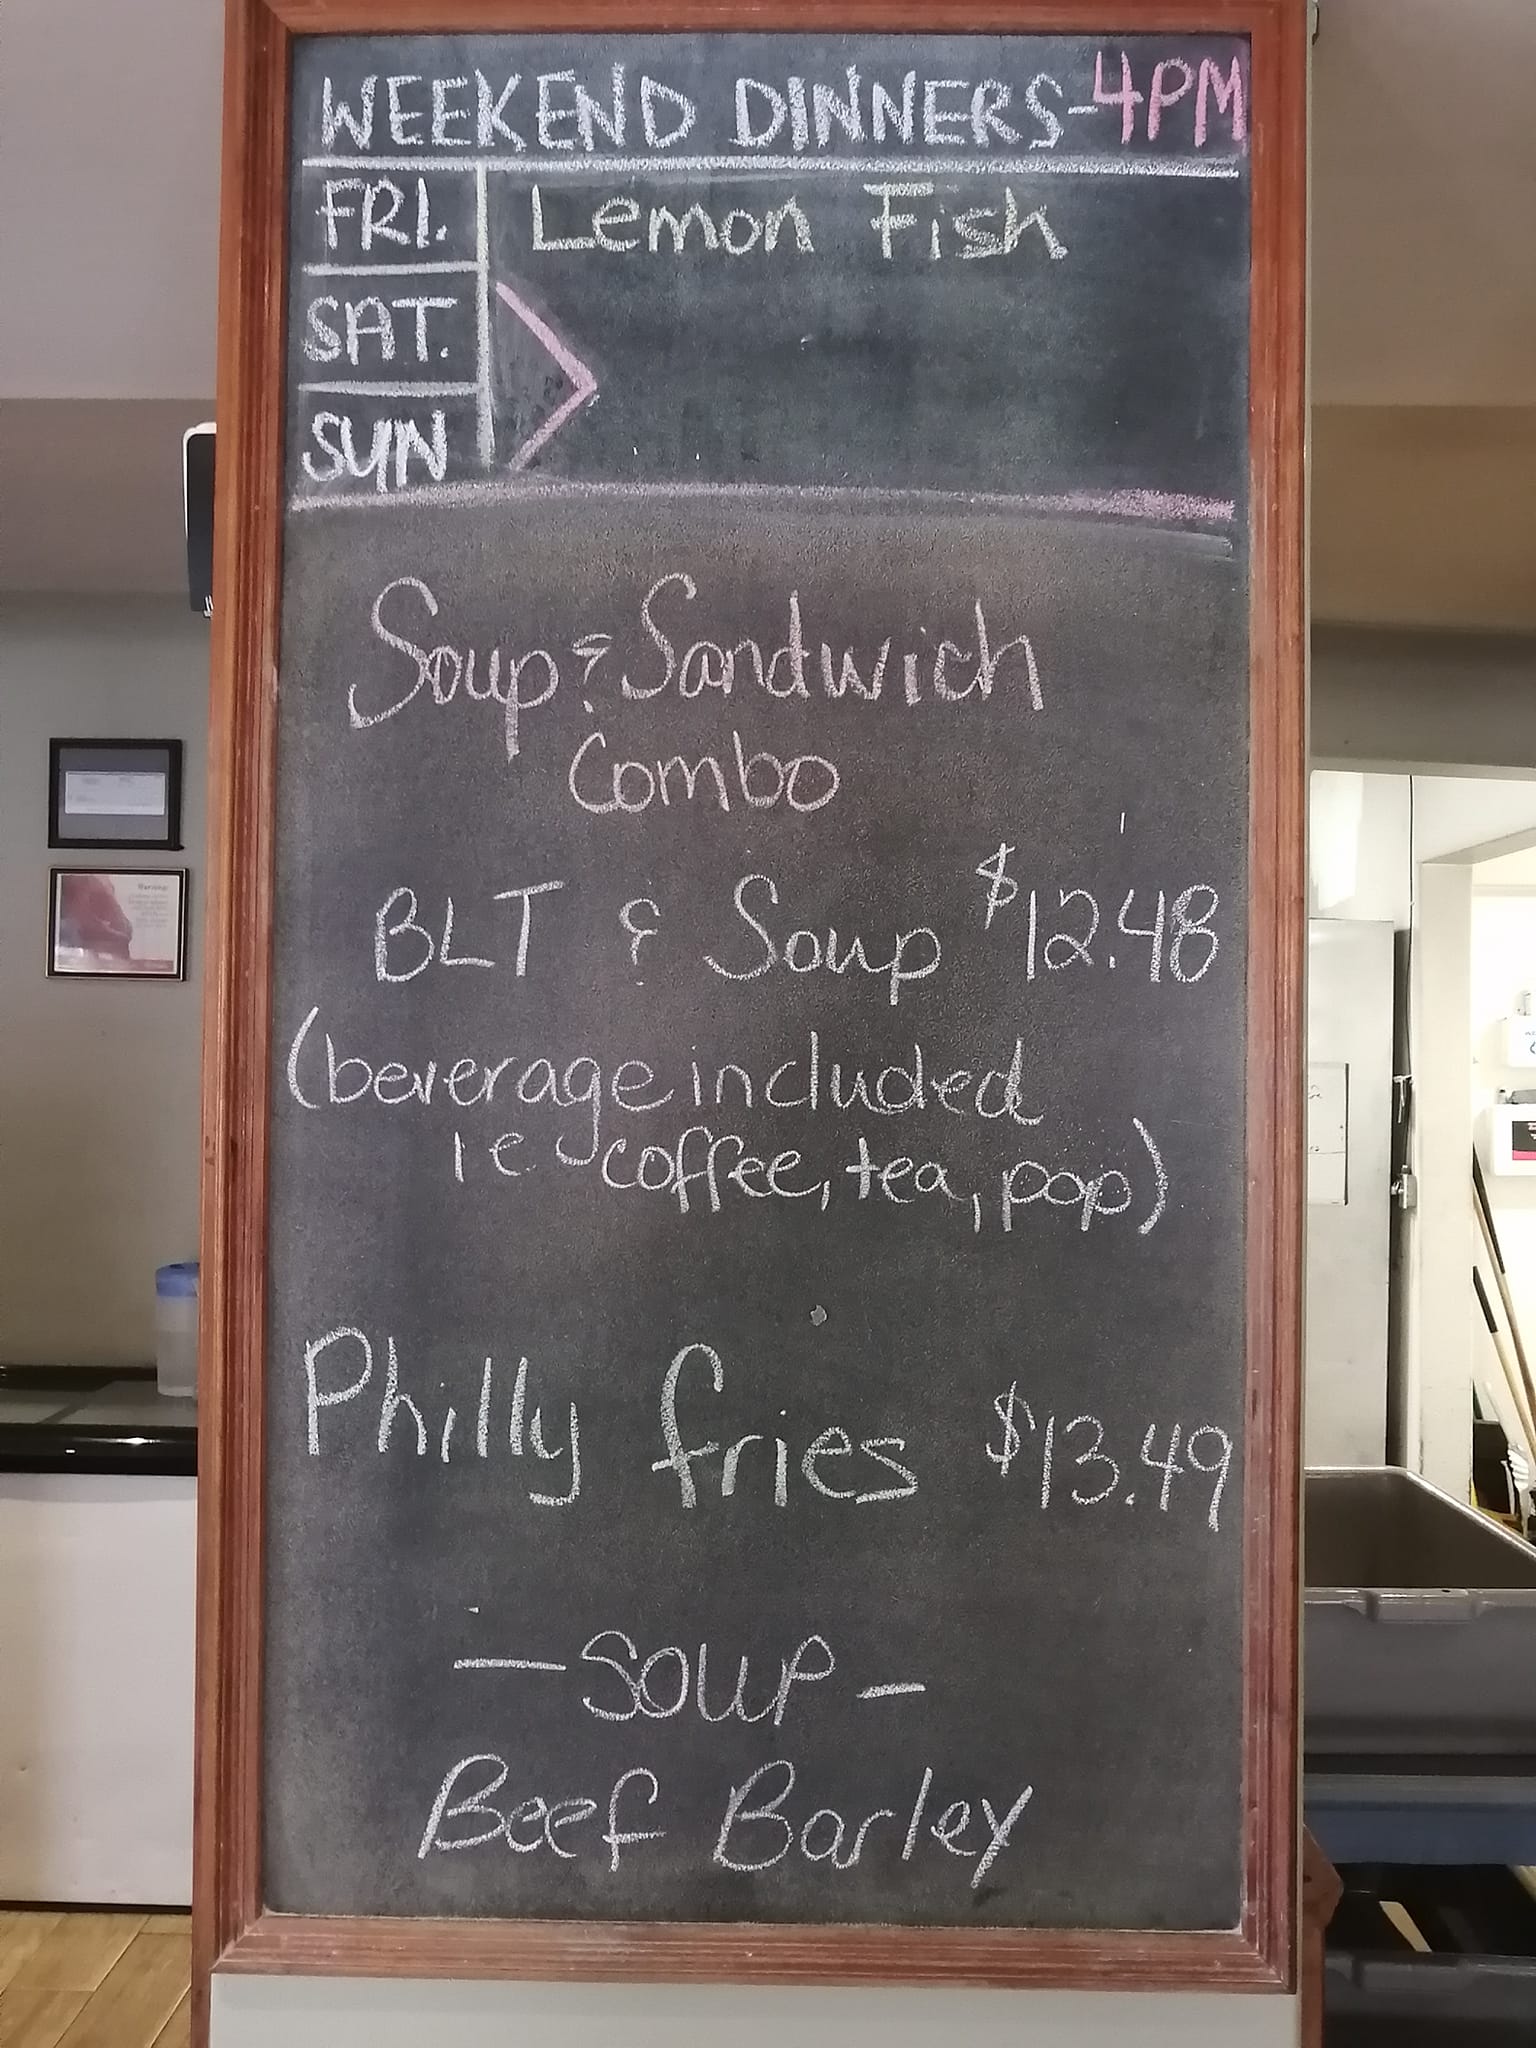 WEEKEND DINNERS-4PM
FRI. Lemon Fish
SAT.
SUN
Soup & Sandwich
Combo
BLT & Soup $12.48
(beverage included
ie coffee, tea, pop)
Philly fries $13.49
- SOUP -
Beef Barley